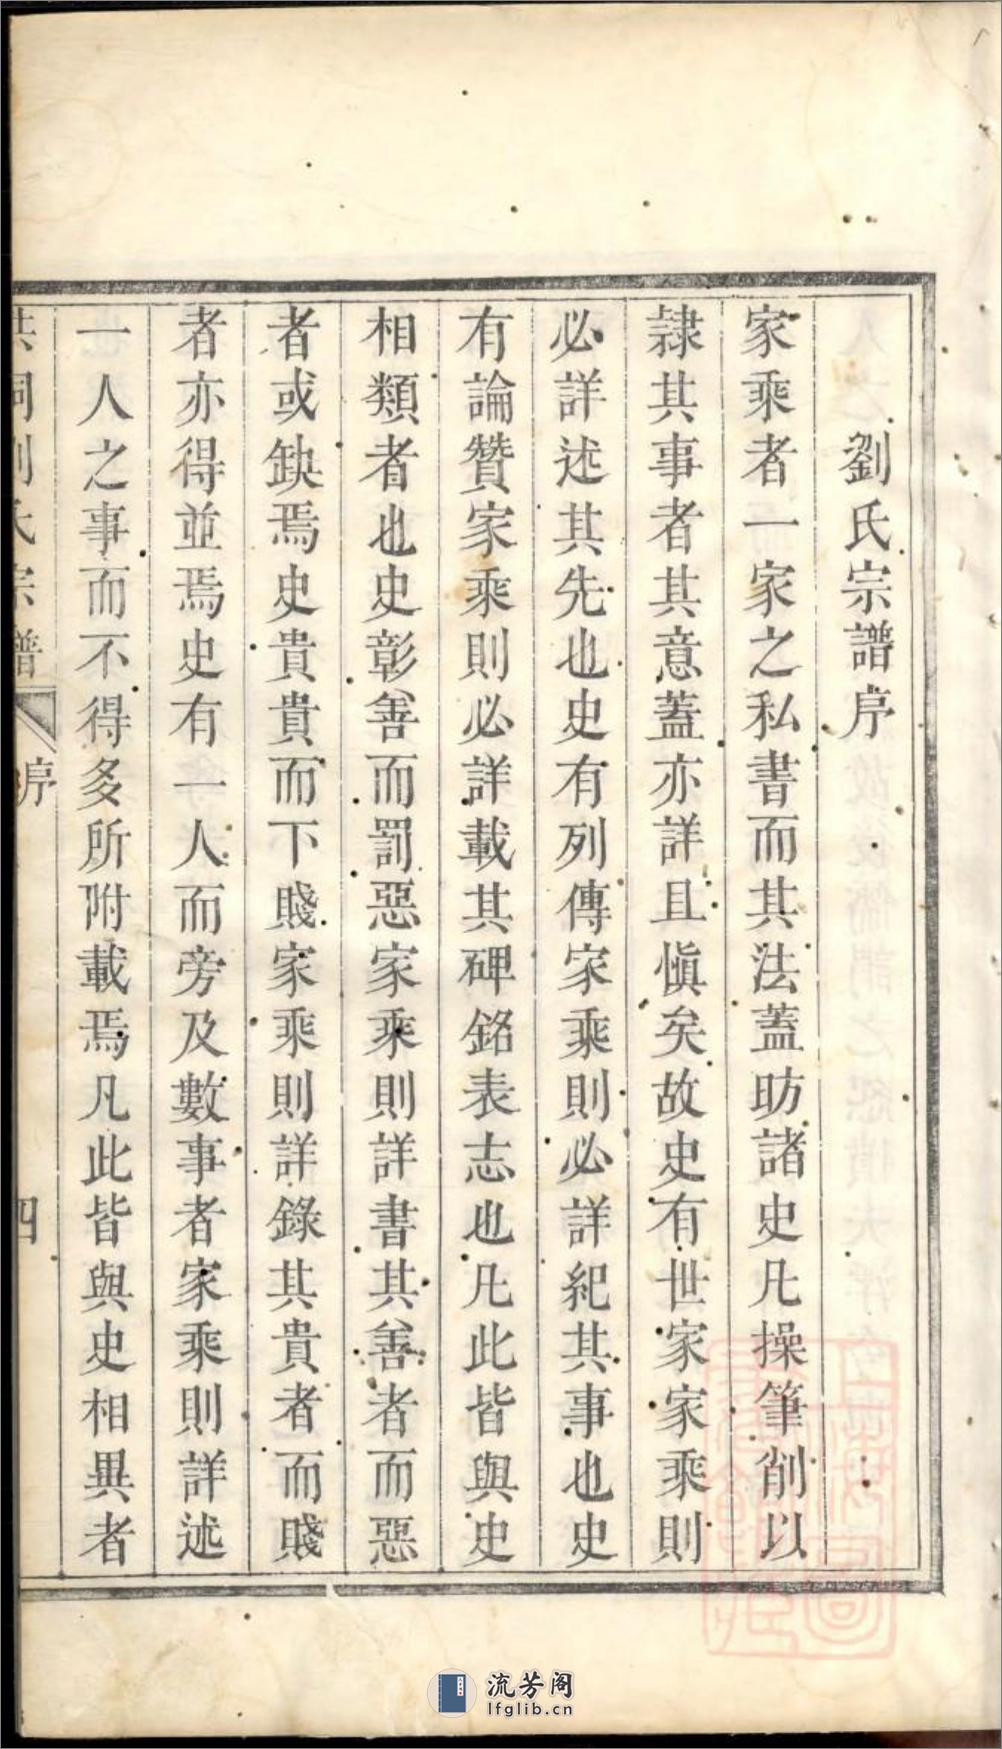 劉氏宗譜序
家乘者一家之私書而其法蓋昉諸史凡操筆削以
隷其事者其意蓋亦詳且愼矣故史有世家家乘則
必詳述其先也史有列傳家乘則必詳紀其事也史
有論贊家乘則必詳載其碑銘表志也凡此皆與史
相類者也史彰善而罰惡家乘則詳書其善者而惡
者或缺焉史貴貴而下賤家乘則詳錄其貴者而賤
者亦得並焉史有一人而旁及數事者家乘則詳述
一人之事而不得多所附載焉凡此皆與史相異者
洪洞劉氏宗譜 序 四
流芳阁
lfglib.cn